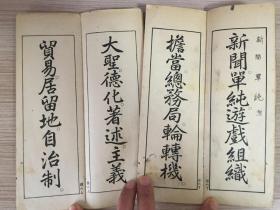 新聞單純遊戲組織
擔當總務局輪轉機
大聖德化著述主義
貿易居留地自治制